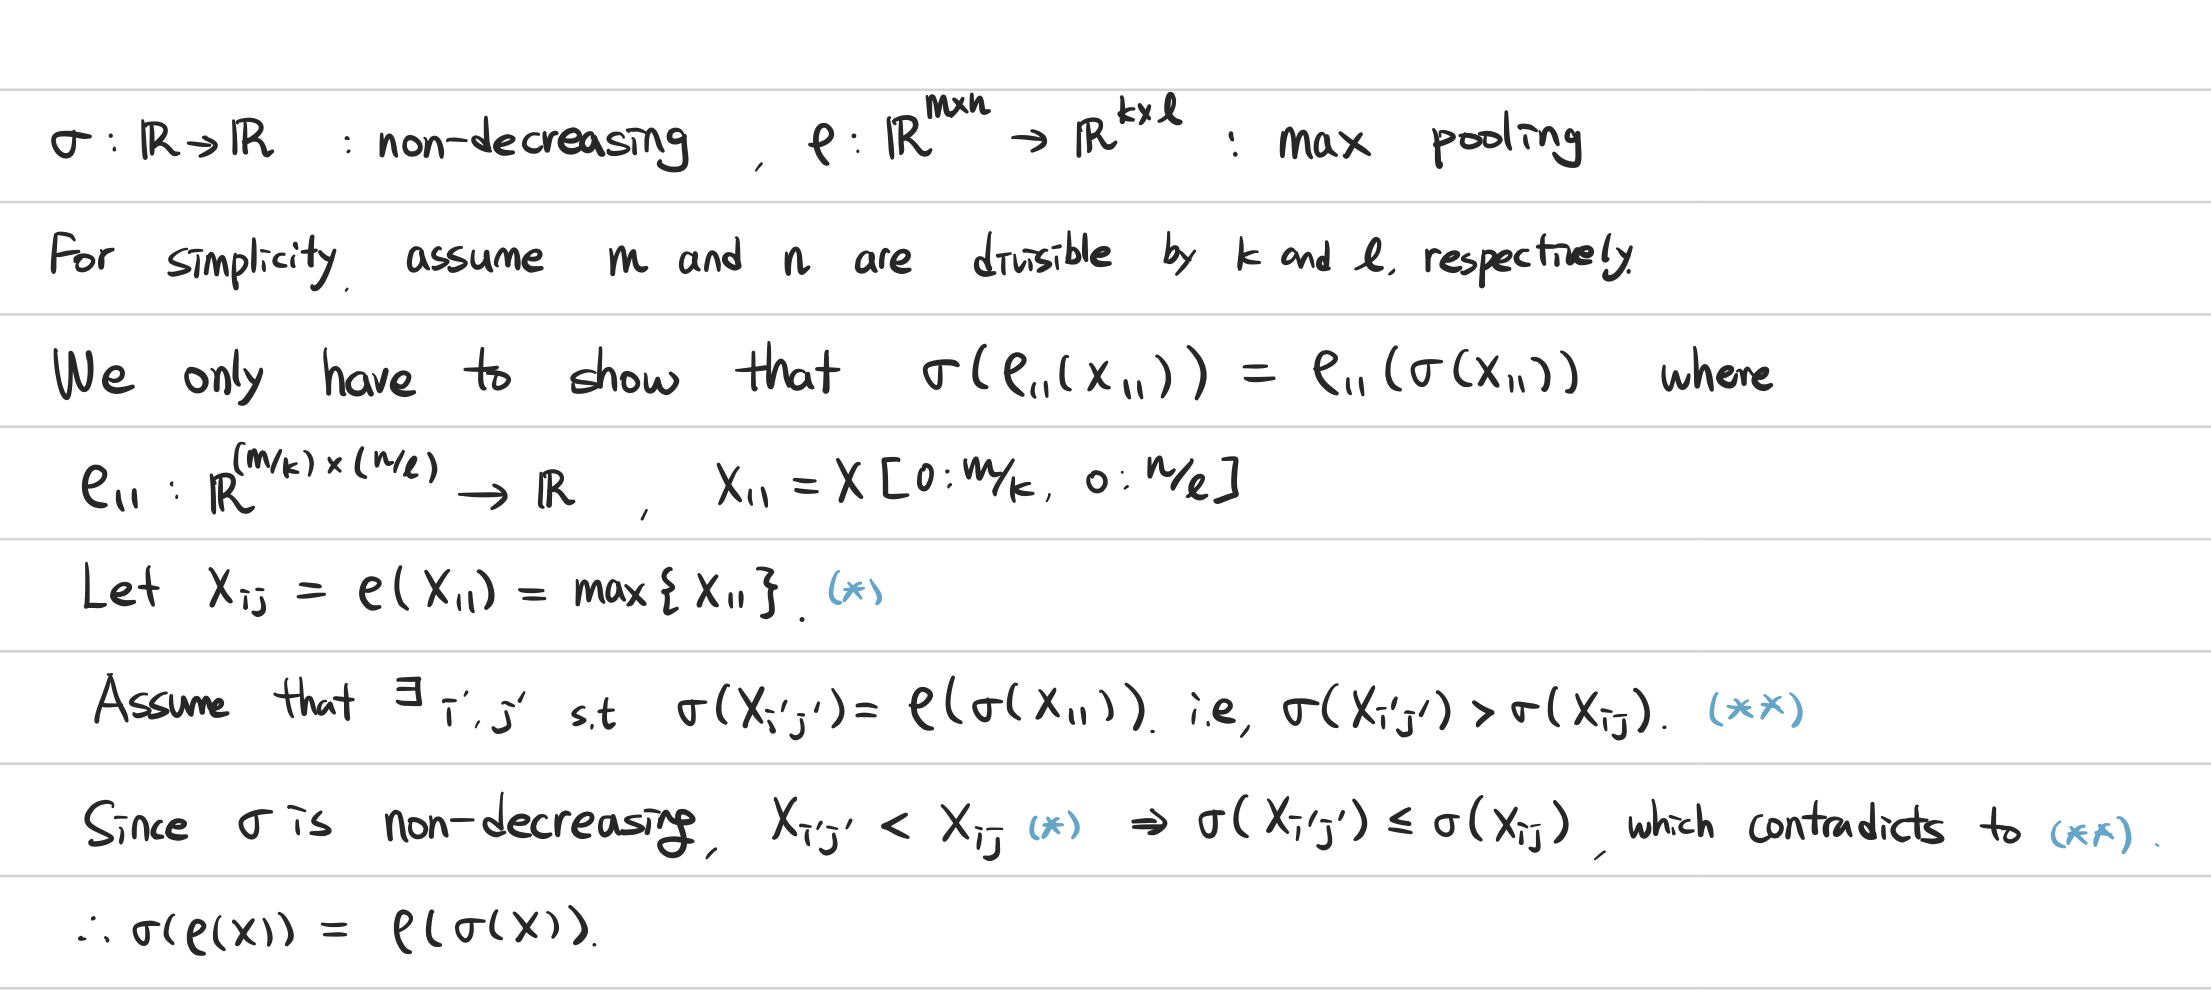 σ : ℝ → ℝ : non-decreasing , ρ : ℝ^{m×n} → ℝ^{k×l} : max pooling
For simplicity, assume m and n are divisible by k and l, respectively.
We only have to show that σ(ρ₁₁(X₁₁)) = ρ₁₁(σ(X₁₁)) where
ρ₁₁ : ℝ^{(m/k)×(n/l)} → ℝ , X₁₁ = X[0:m/k, 0:n/l]
Let X_{ij} = ρ(X₁₁) = max{X₁₁}. (*)
Assume that ∃ i', j' s.t σ(X_{i'j'}) = ρ(σ(X₁₁)). i.e, σ(X_{i'j'}) > σ(X_{ij}). (**)
Since σ is non-decreasing, X_{i'j'} < X_{ij} (*) ⇒ σ(X_{i'j'}) ≤ σ(X_{ij}), which contradicts to (**).
∴ σ(ρ(X)) = ρ(σ(X)).